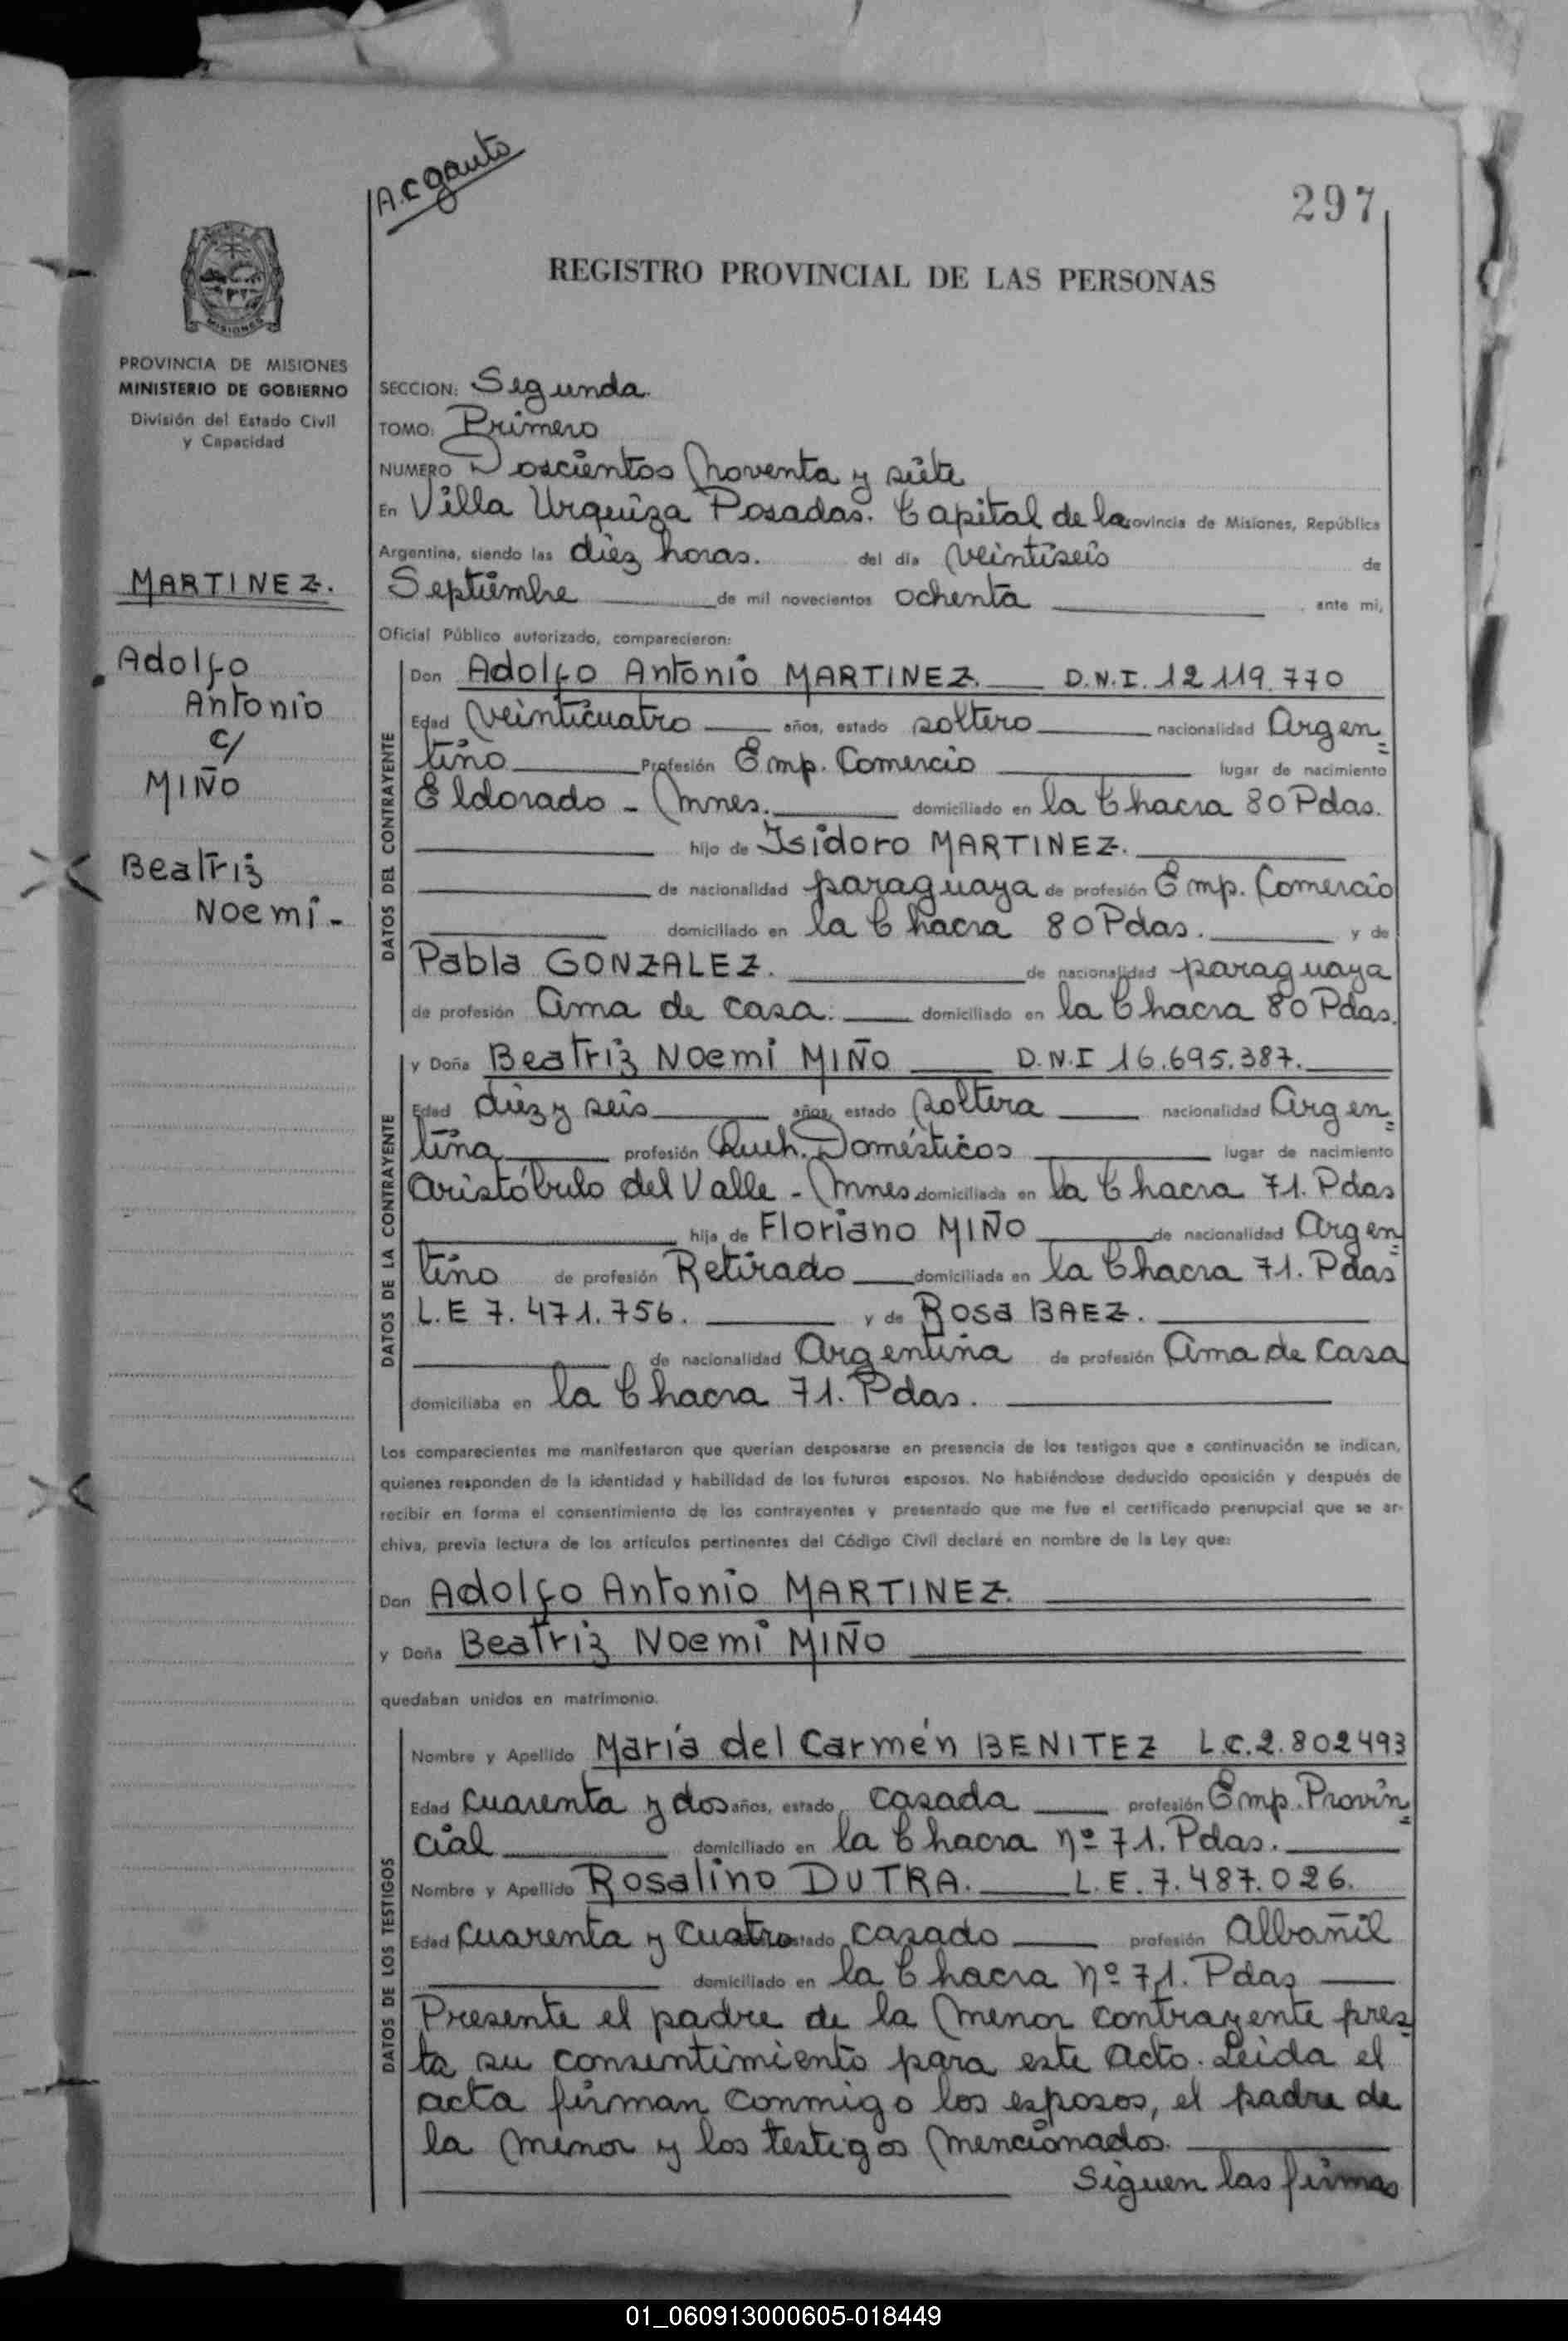 A.C gauto
297
REGISTRO PROVINCIAL DE LAS PERSONAS
MISIONES
PROVINCIA DE MISIONES
MINISTERIO DE GOBIERNO
División del Estado Civil
y Capacidad
MARTINEZ.
Adolfo
Antonio
c/
MIÑO
Beatriz
Noemi-
SECCION: Segunda.
TOMO: Primero
NUMERO Doscientos noventa y siete
En Villa Urquiza Posadas. Capital de la rovincia de Misiones, República
Argentina, siendo las diez horas. del día veintiseis de
Septiembre de mil novecientos ochenta , ante mi,
Oficial Público autorizado, comparecieron:
DATOS DEL CONTRAYENTE
Don Adolfo Antonio MARTINEZ. D.N.I. 12.119.770
Edad veinticuatro años, estado soltero nacionalidad Argen=
tino Profesión Emp. Comercio lugar de nacimiento
Eldorado - Mnes. domiciliado en la Chacra 80 Pdas.
hijo de Isidoro MARTINEZ.
de nacionalidad paraguaya de profesión Emp. Comercio
domiciliado en la Chacra 80 Pdas. y de
Pabla GONZALEZ. de nacionalidad paraguaya
de profesión Ama de casa. domiciliado en la Chacra 80 Pdas.
DATOS DE LA CONTRAYENTE
y Doña Beatriz Noemi MIÑO D.N.I 16.695.387.
Edad diez y seis años, estado soltera nacionalidad Argen=
tina profesión Queh. Domésticos lugar de nacimiento
Aristóbulo del Valle - Mnes domiciliada en la Chacra 71. Pdas
hija de Floriano MIÑO de nacionalidad Argen=
tino de profesión Retirado domiciliada en la Chacra 71. Pdas
L.E 7.471.756. y de Rosa BAEZ.
de nacionalidad Argentina de profesión Ama de Casa
domiciliaba en la Chacra 71. Pdas.
Los comparecientes me manifestaron que querían desposarse en presencia de los testigos que a continuación se indican,
quienes responden de la identidad y habilidad de los futuros esposos. No habiéndose deducido oposición y después de
recibir en forma el consentimiento de los contrayentes y presentado que me fue el certificado prenupcial que se ar-
chiva, previa lectura de los artículos pertinentes del Código Civil declaré en nombre de la Ley que:
Don Adolfo Antonio MARTINEZ.
y Doña Beatriz Noemi MIÑO
quedaban unidos en matrimonio.
DATOS DE LOS TESTIGOS
Nombre y Apellido María del Carmén BENITEZ L.C.2.802493
Edad cuarenta y dos años, estado casada profesión Emp. Provin=
cial domiciliado en la Chacra nº 71. Pdas.
Nombre y Apellido Rosalino DUTRA. L.E. 7.487.026.
Edad cuarenta y cuatro estado casado profesión Albañil
domiciliado en la Chacra nº 71. Pdas
Presente el padre de la menor contrayente pres=
ta su consentimiento para este Acto. Leida el
acta firman conmigo los esposos, el padre de
la menor y los testigos mencionados.
Siguen las firmas
01_060913000605-018449